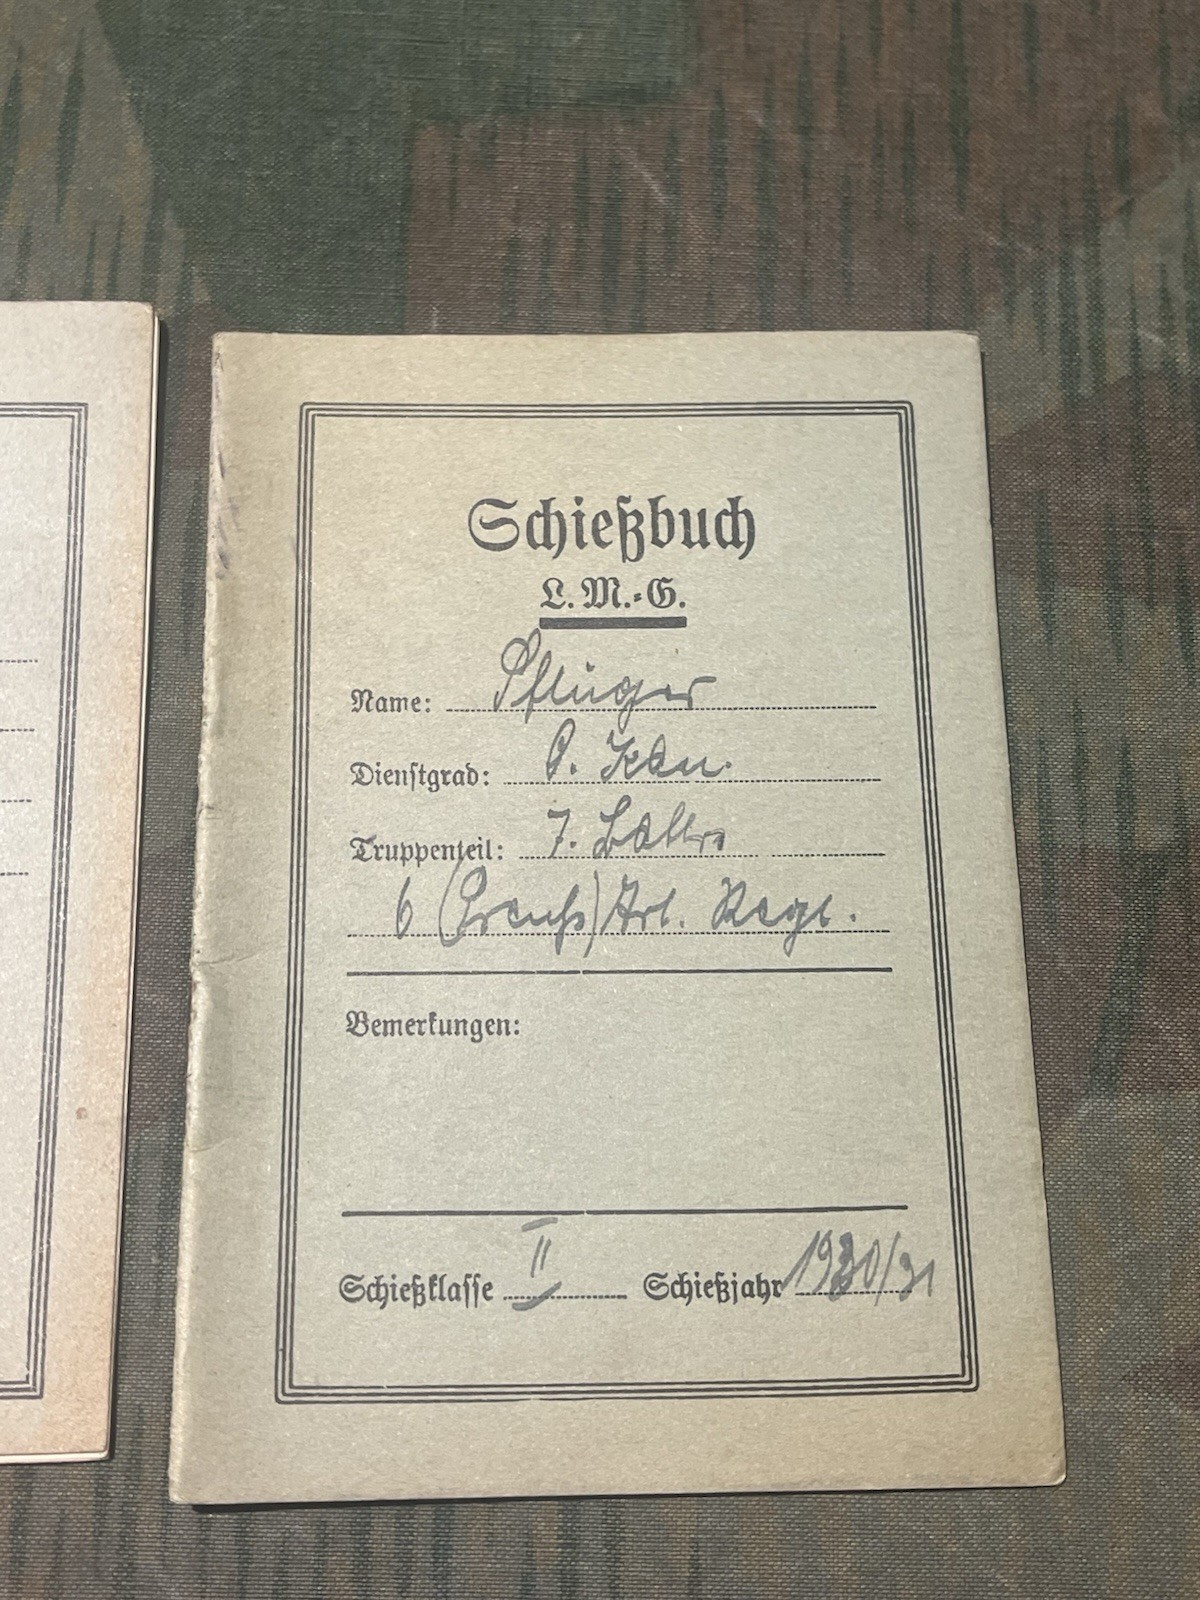 Schießbuch
L. M.-G.
Name: Pflüger
Dienstgrad: O. Kan.
Truppenteil: 7. Battr.
6 (Preuß) Art. Regt.
Bemerkungen:
Schießklasse II Schießjahr 1930/31